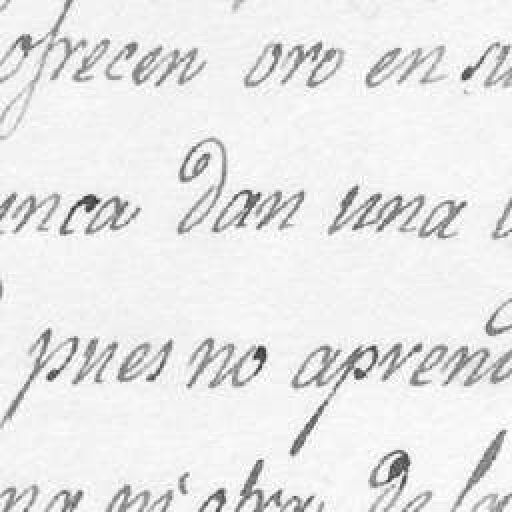 ofrecen oro en su
unca dan una
pues no aprend
na ni obra de la